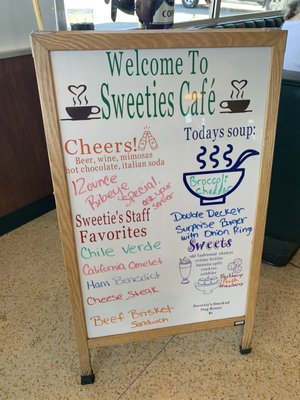 Sweeties
Welcome To
Sweeties Café
Cheers!
Beer, wine, mimosas
hot chocolate, italian soda
12ounce
Ribeye
Special!
ask your
server
Sweetie's Staff
Favorites
Chile Verde
California Omelet
Ham Benedict
Cheese Steak
Beef Brisket
Sandwich
Todays soup:
Broccoli
cheddar
Double Decker
Surprise Burger
with Onion Rings
Sweets
old fashioned shakes
crème brûlée
banana split
cookies
cobbler
Blackberry
Peach
Strawberry
Sweetie's Smoked
Dog Bones